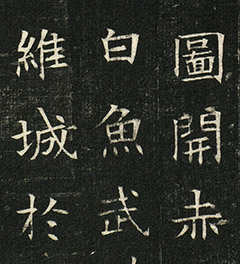 圖開赤
白魚武
維城於